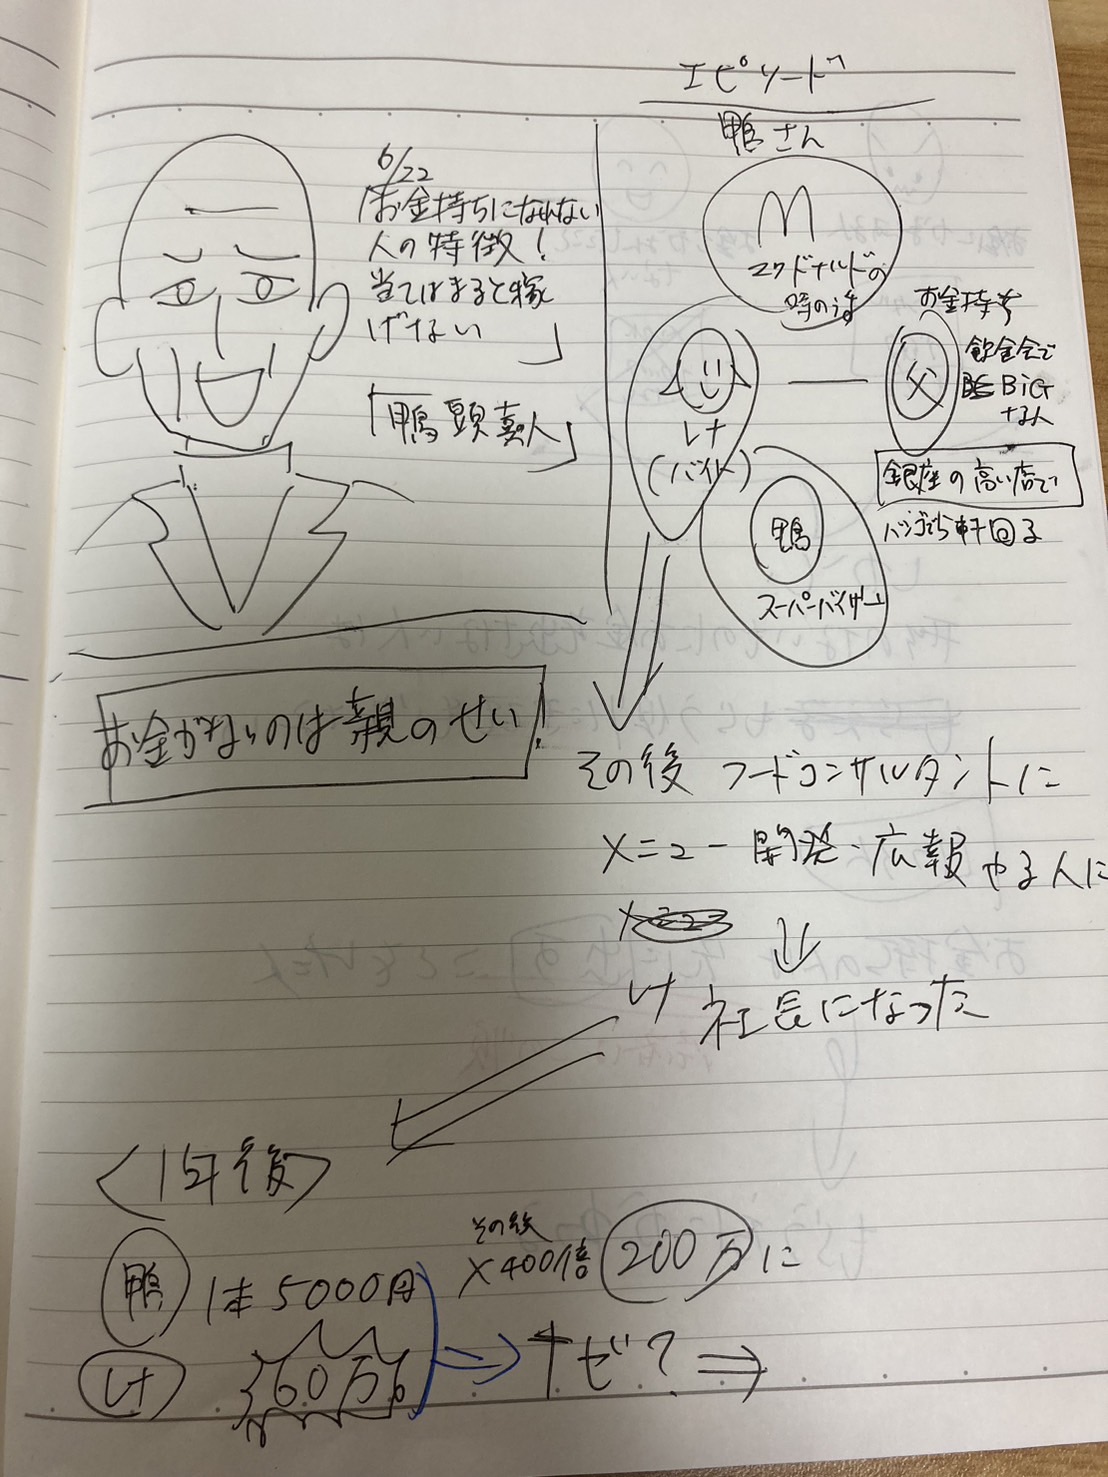 6/22
「お金持ちになれない
人の特徴！
当てはまると稼
げない」
「鴨頭嘉人」
エピソード
鴨さん
M
マクドナルドの
時の話
け
(バイト)
お金持ち
父
飲食会で
BiG
な人
銀座の高い店で
ハシゴで5軒回る
鴨
スーパーバイザー
お金がないのは親のせい！
その後 フードコンサルタントに
メニュー開発・広報やる人に
け 社長になった
〈1年後〉
鴨 1本5000円
け 360万
その後
×400倍 200万に
ナゼ？⇒